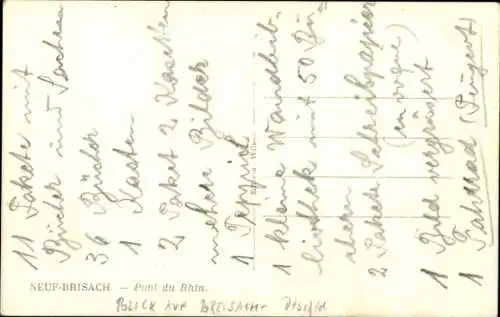 11 Pakete mit
Bücher und Sachen
36 Bücher
1 Kasten
2 Paket 2 Kasten
mehere Bilder
1 Teppich
1 kleine Wandbib-
liothek mit 50 Bü-
chern
2 Pakete Schreibpapier
(en vogue)
1 Bild vergrösert
1 Fahrrad (Peugeot)
NEUF-BRISACH. — Pont du Rhin.
BLICK AUF BREISACH